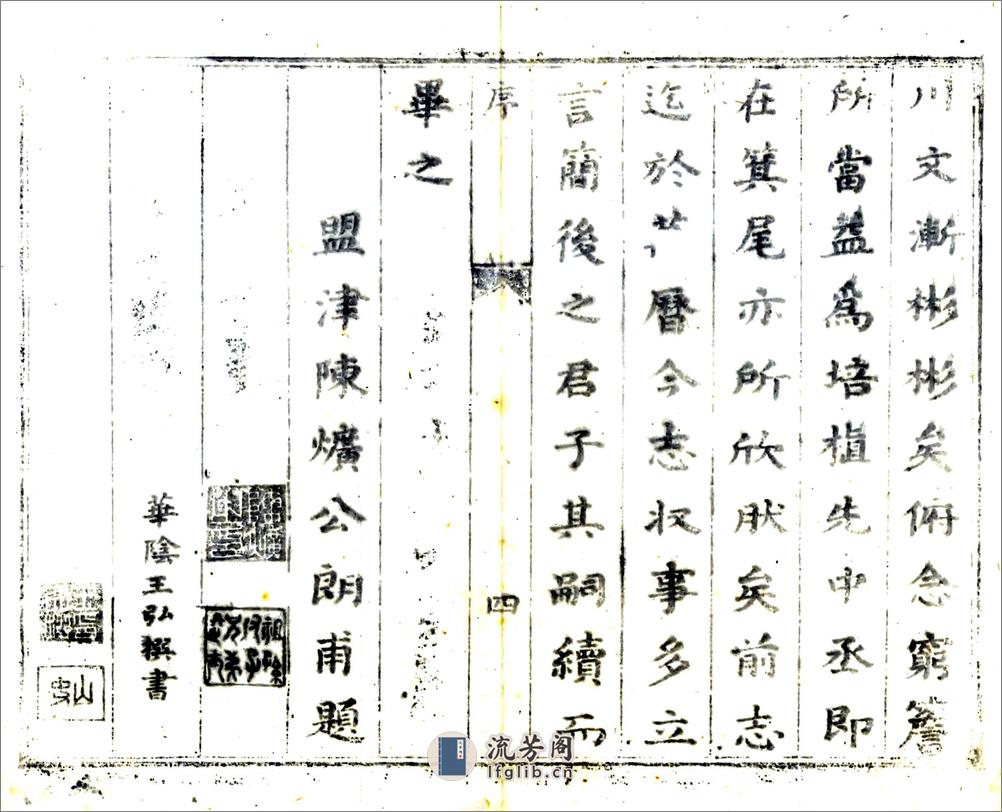 川文漸彬彬矣俯念窮簷
所當益爲培植先中丞即
在箕尾亦所欣肰矣前志
迄於曆今志収事多立
言簡後之君子其嗣續而
序 四
畢之
盟津陳爌公朗甫題
華陰王弘撰書
山史
流芳阁
lfglib.cn